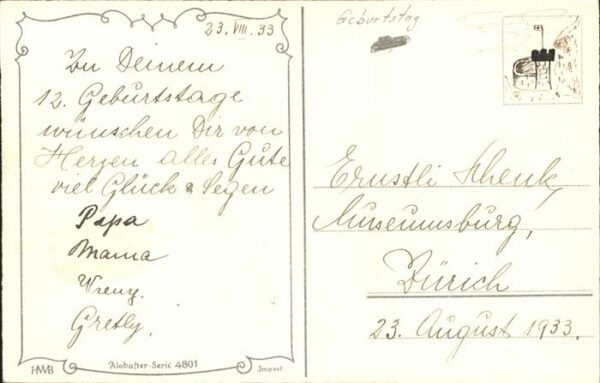 23. VIII. 33
Zu Deinem
12. Geburtstage
wünschen Dir von
Herzen alles Gute
viel Glück & Segen
Papa
Mama
Vreny.
Gretly.
HWB
Alabaster-Serie 4801
Import
Geburtstag
Ernstli Schenk,
Museumsburg,
Zürich
23. August 1933.